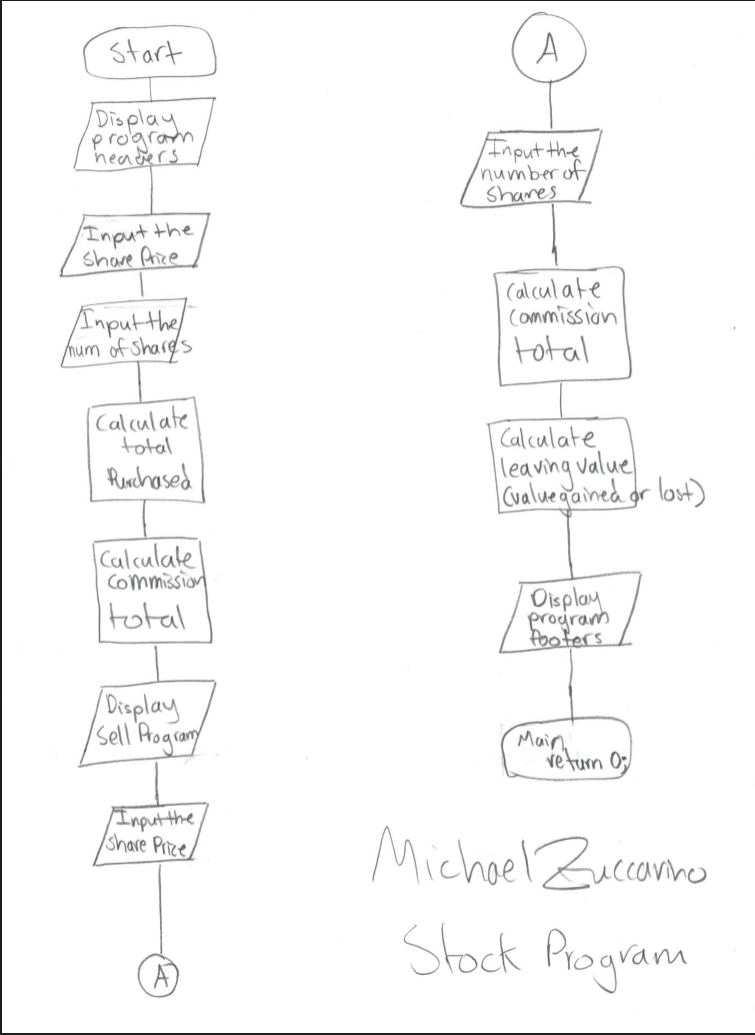 Start
Display
program
headers
Input the
Share Price
Input the
num of shares
Calculate
total
Purchased
Calculate
Commission
total
Display
Sell Program
Input the
Share Price
A
A
Input the
number of
Shares
Calculate
Commission
total
Calculate
leaving value
(value gained or lost)
Display
program
footers
Main
return 0;
Michael Zuccarino
Stock Program